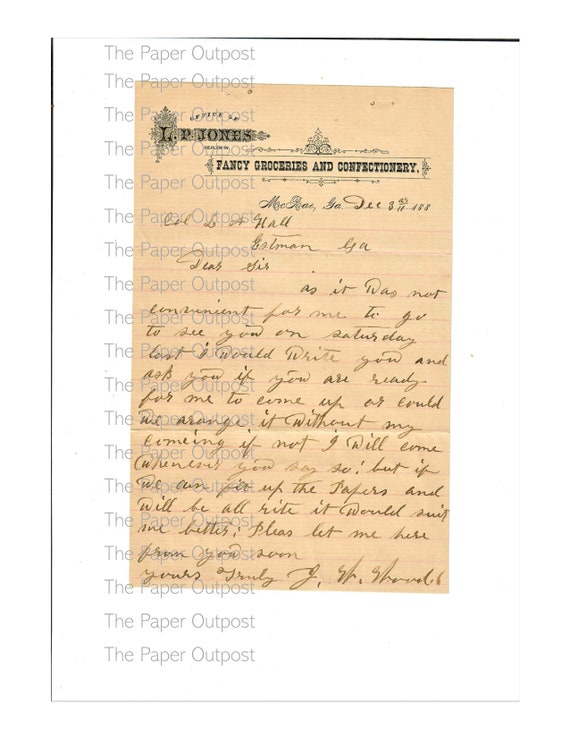 The Paper Outpost
The Paper Outpost
OFFICE OF
The Paper Outpost
L. P. JONES
DEALER IN
The Paper Outpost
FANCY GROCERIES AND CONFECTIONERY.
The Paper Outpost
McRae, Ga. Dec 3 188
The Paper Outpost
Col L A Hall
Estman Ga
The Paper Outpost
Dear Sir
The Paper Outpost
as it Was not
convenient for me to go
The Paper Outpost
to see you on saturday
The Paper Outpost
last i Would Write you and
The Paper Outpost
ask you if you are ready
for me to come up or could
The Paper Outpost
we arange it Without my
The Paper Outpost
comeing if not i Will come
Whenever you say so; but if
The Paper Outpost
We can fix up the Papers and
The Paper Outpost
Will be all rite it Would suit
The Paper Outpost
me better; Pleas let me here
from you soon
The Paper Outpost
yours Truly J. W.
The Paper Outpost
The Paper Outpost
The Paper Outpost